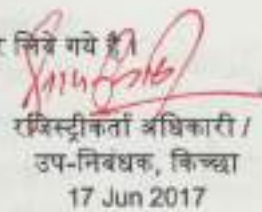 र लिये गये है।
रजिस्ट्रीकर्ता अधिकारी /
उप-निबंधक, किच्छा
17 Jun 2017